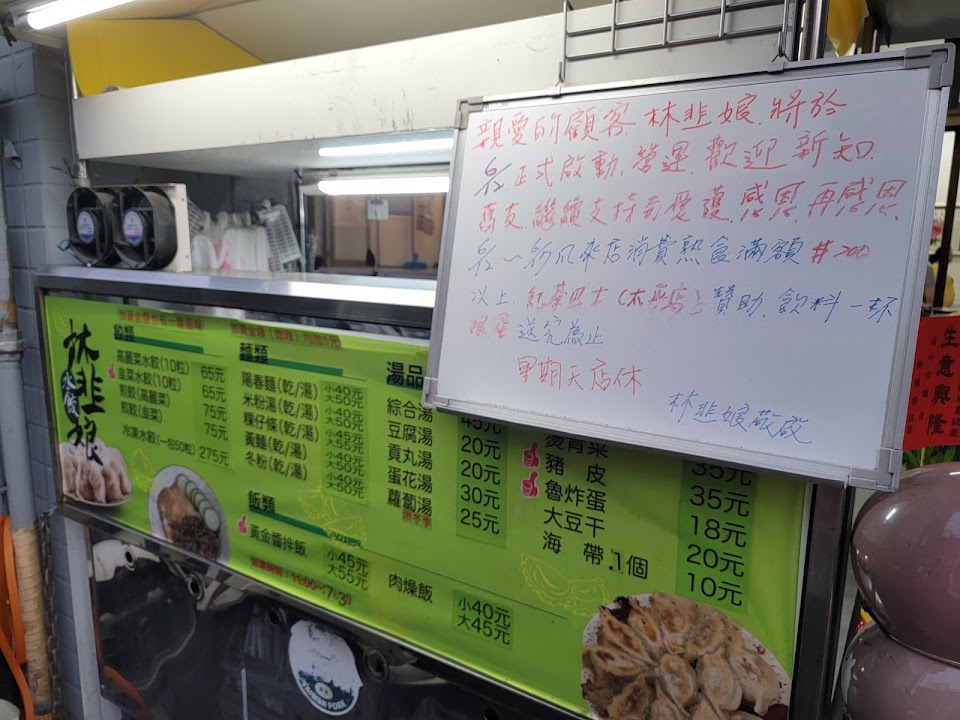 親愛的顧客 林韭娘.將於
正式啟動.營運.歡迎 新知.
舊友.繼續支持與愛護.感恩 再感恩
凡來店消費熱食滿額 #200
以上.紅茶巴士 贊助.飲料一杯
送完為止
星期天店休
林韭娘敬啟
林韭娘
水餃
加黃金醬
餃類
高麗菜水餃(10粒) 65元
韭菜水餃(10粒) 65元
煎餃(高麗菜) 75元
煎餃(韭菜) 75元
冷凍水餃(一包50粒) 275元
麵類
陽春麵(乾/湯) 小40元 大50元
米粉湯(乾/湯) 小40元 大50元
粿仔條(乾/湯) 小45元 大50元
黃麵(乾/湯) 小40元 大50元
冬粉(乾/湯) 小40元 大50元
飯類
黃金醬拌飯 小45元 大55元
肉燥飯 小40元 大45元
湯品
綜合湯 45元
豆腐湯 20元
貢丸湯 20元
蛋花湯 30元
蘿蔔湯 25元
限冬季
燙青菜 35元
豬 皮 35元
魯炸蛋 18元
大豆干 20元
海 帶 1個 10元
營業時間:11:00
生意興隆
PORK